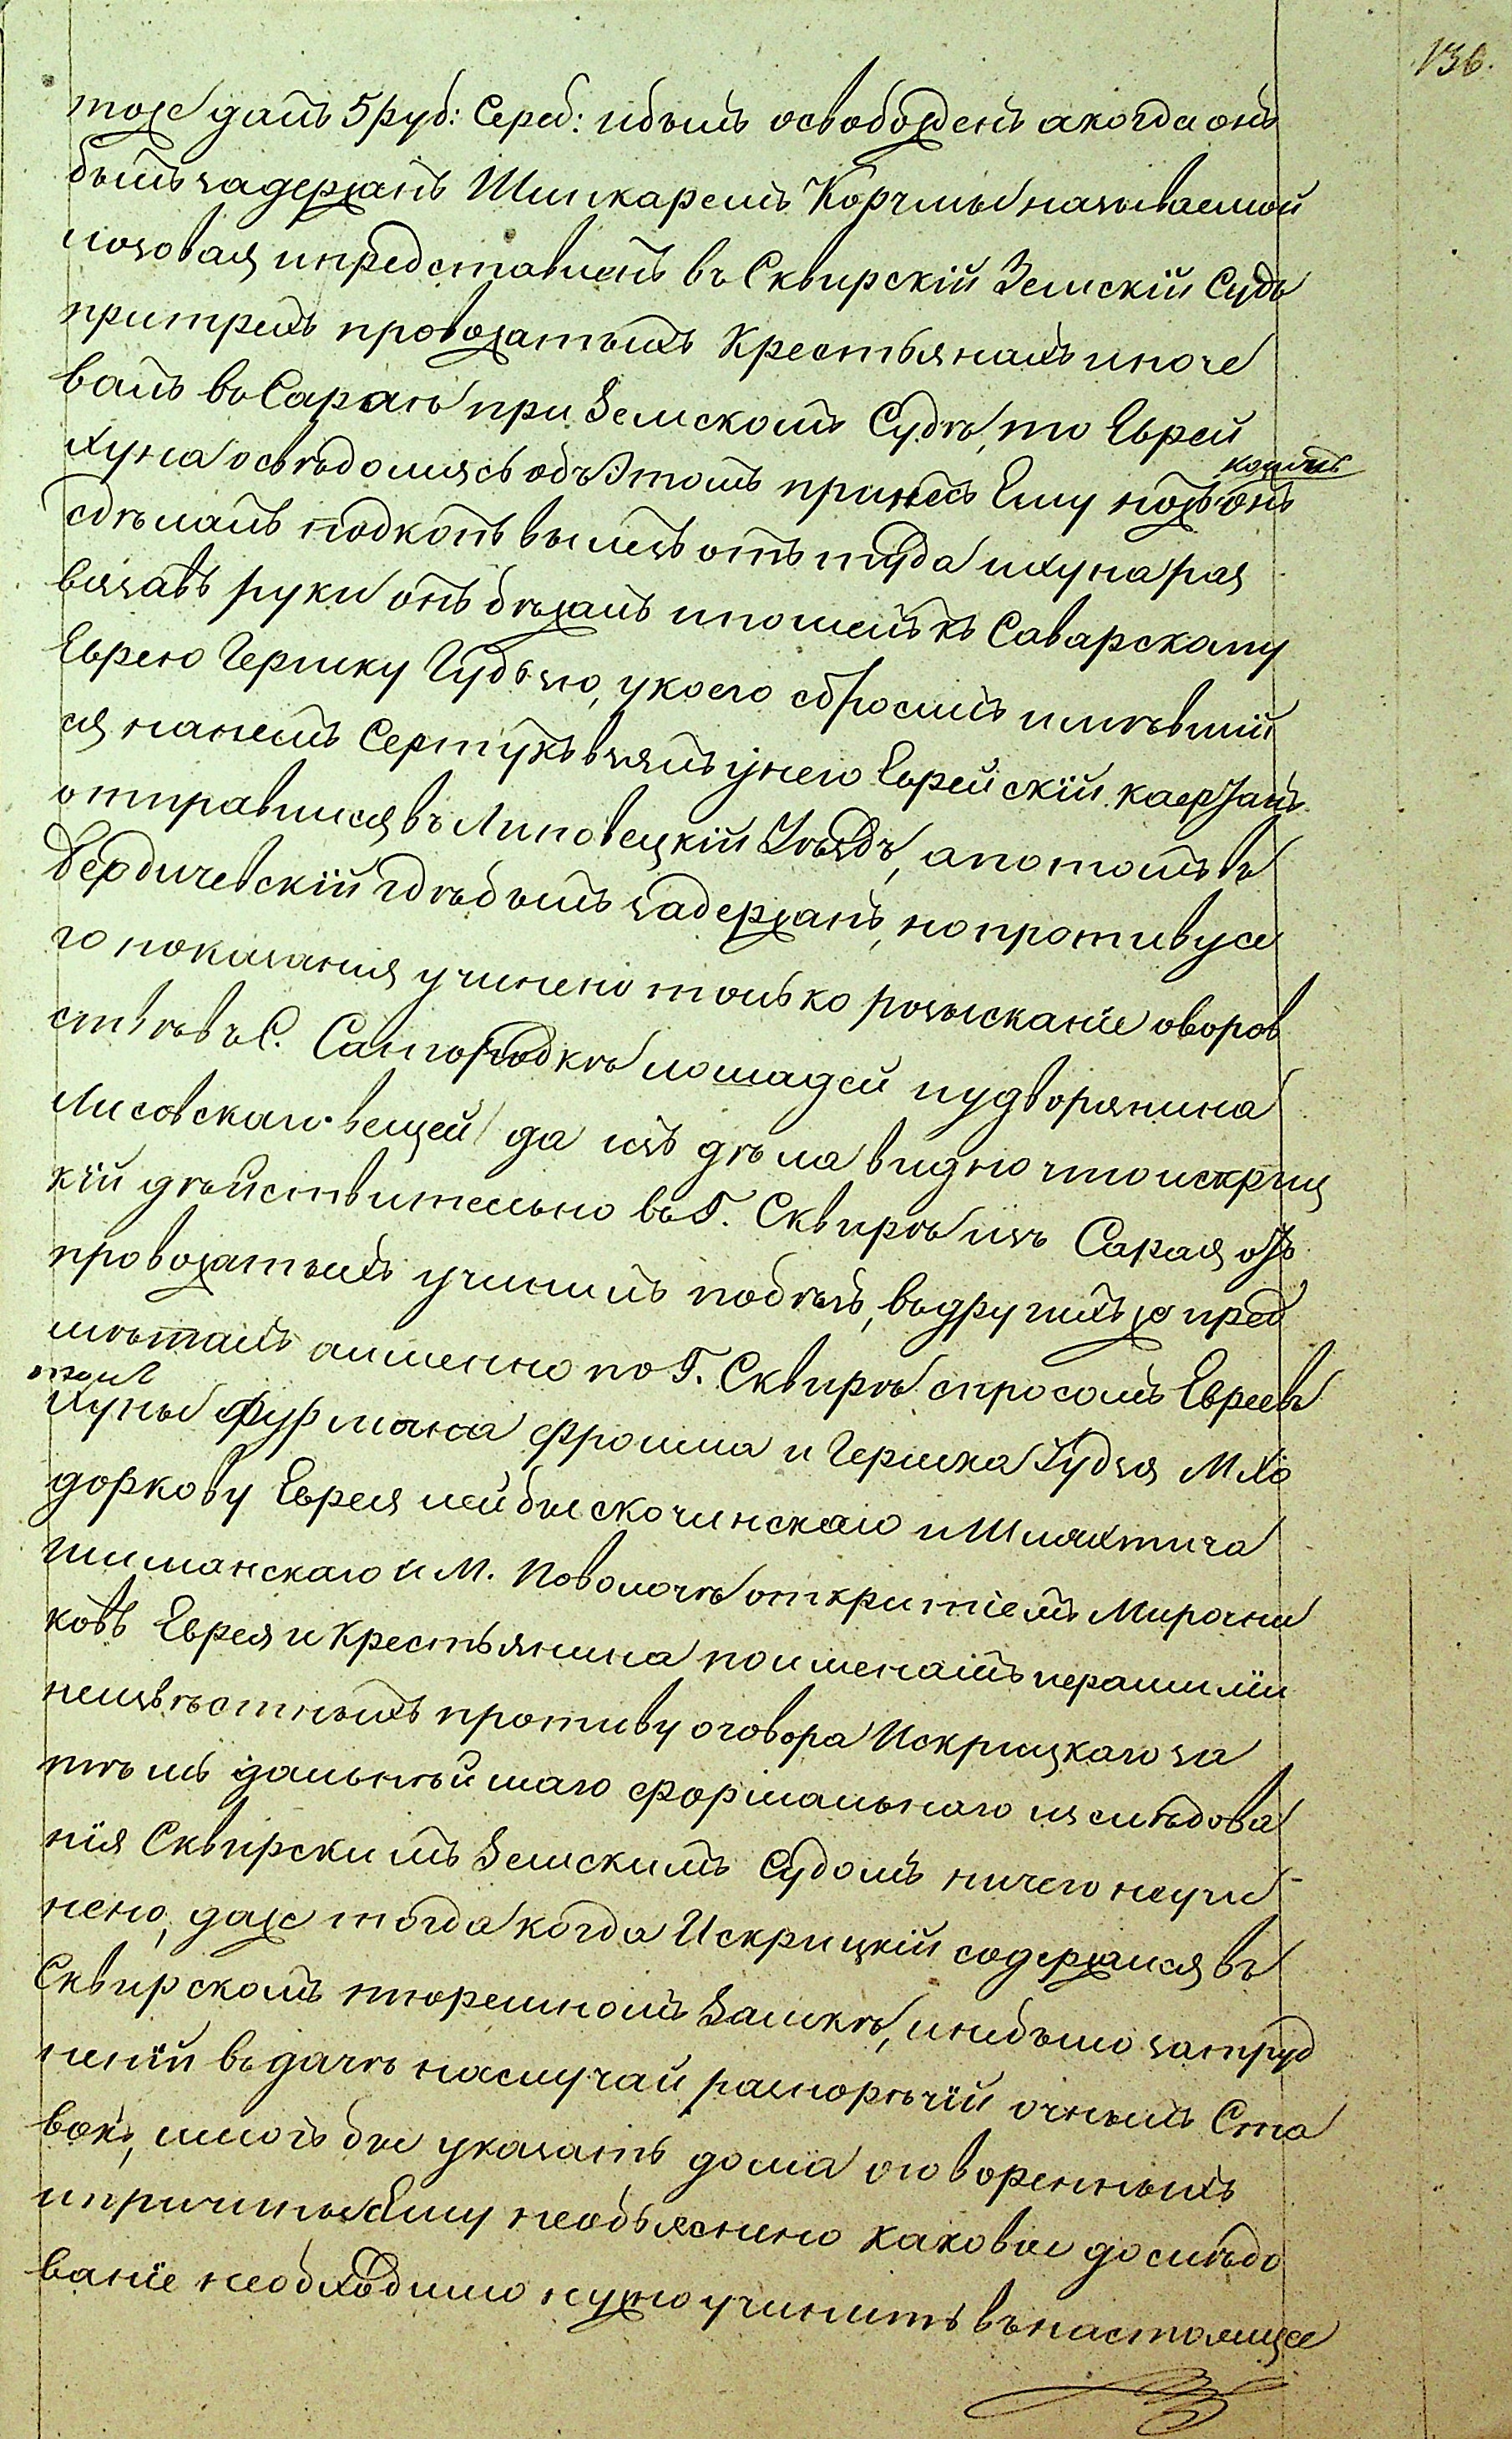 136.
тоже далъ 5 руб: Сереб: ибылъ освобожденъ акогда онъ
былъ задержанъ Шинкаремъ Корчмы называемой
лозовая ипредставленъ въ Сквирскій Земскій Судъ
притрехъ провожатыхъ Крестьянахъ иноче
валъ въ Сараѣ при Земскомъ Судѣ, то Еврей
Хуна освѣдомясь объ Этомъ принесъ Ему ножъ коимъ онъ
сдѣлалъ подкопъ вылезъ отъ туда ихуна раз
вязавъ руки онъ бѣжалъ ипошелъ къ Саварскому
Еврею Гершку Гудзю, укоего сбросилъ имѣвшій
ся нанемъ Сертукъ взялъ унего Еврейскій кафтанъ
отправился въ Липовецкій Уѣздъ, апотомъ въ
Бердичевскій гдѣ былъ задержанъ, но противу се
го показанія учинено только розысканіе оворов
ствѣ въ С. Самгородкѣ лошадей иудворянина
Лисовскаго вещей да изъ дѣла видно что искриц
кій дѣйствительно въ Г. Сквирѣ изъ Сарая отъ
провожатыхъ учинилъ побѣгъ, въ другихъ же пред
мѣтахъ аименно по Г. Сквирѣ спросомъ Евреевъ
Хуны Фурмана Фроима и Гершка Гудзя М Хо
доркову Еврея лейбы скочинскаго и Шляхтича
шиманскаго и М. Поволочѣ открытіемъ Мирочни
ковъ Еврея и Крестьянина поименамъ ифамиліи
неизвѣстныхъ противу оговора Искрицкаго за
тѣмъ дальнѣйшаго формальнаго изслѣдова
нія Сквирскимъ Земскимъ Судомъ ничего неучи-
нено, даже тогда когда Искрицкій содержался въ
Сквирскомъ тюремномъ Замкѣ, инебыло затруд
неній въ дачѣ наслучай разнорѣчій очныхъ Ста
вокъ, имогъ бы указать дома оговоренныхъ
ипричины Ему необъяснено каковое дослѣдо
ваніе необходимо нужно учинить въ настоящее